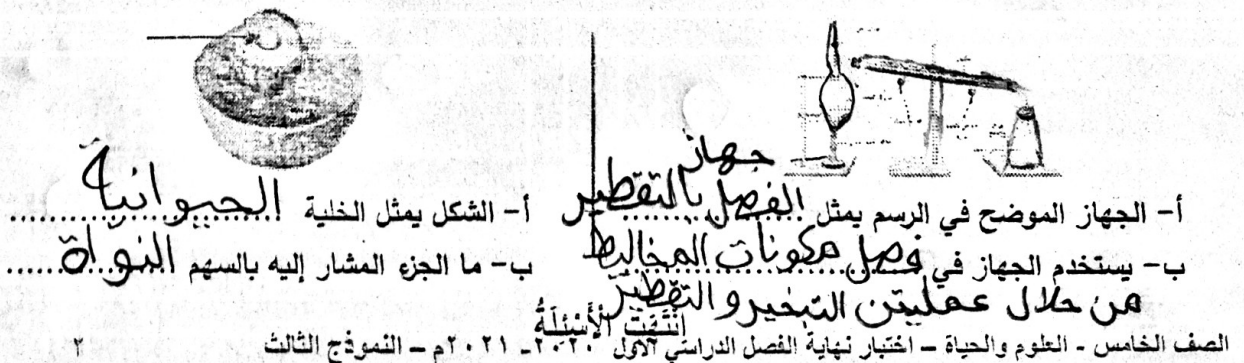 جهاز
أ- الجهاز الموضح في الرسم يمثل الفصل بالتقطير
ب- يستخدم الجهاز في فصل مكونات المخاليط
من خلال عمليتن التبخير والتقطير
أ- الشكل يمثل الخلية الحيوانية
ب- ما الجزء المشار إليه بالسهم النواة
انْتَهَتِ الْأَسْئِلَةُ
الصف الخامس - العلوم والحياة - اختبار نهاية الفصل الدراسي الأول ٢٠٢٠- ٢٠٢١م - النموذج الثالث ٢